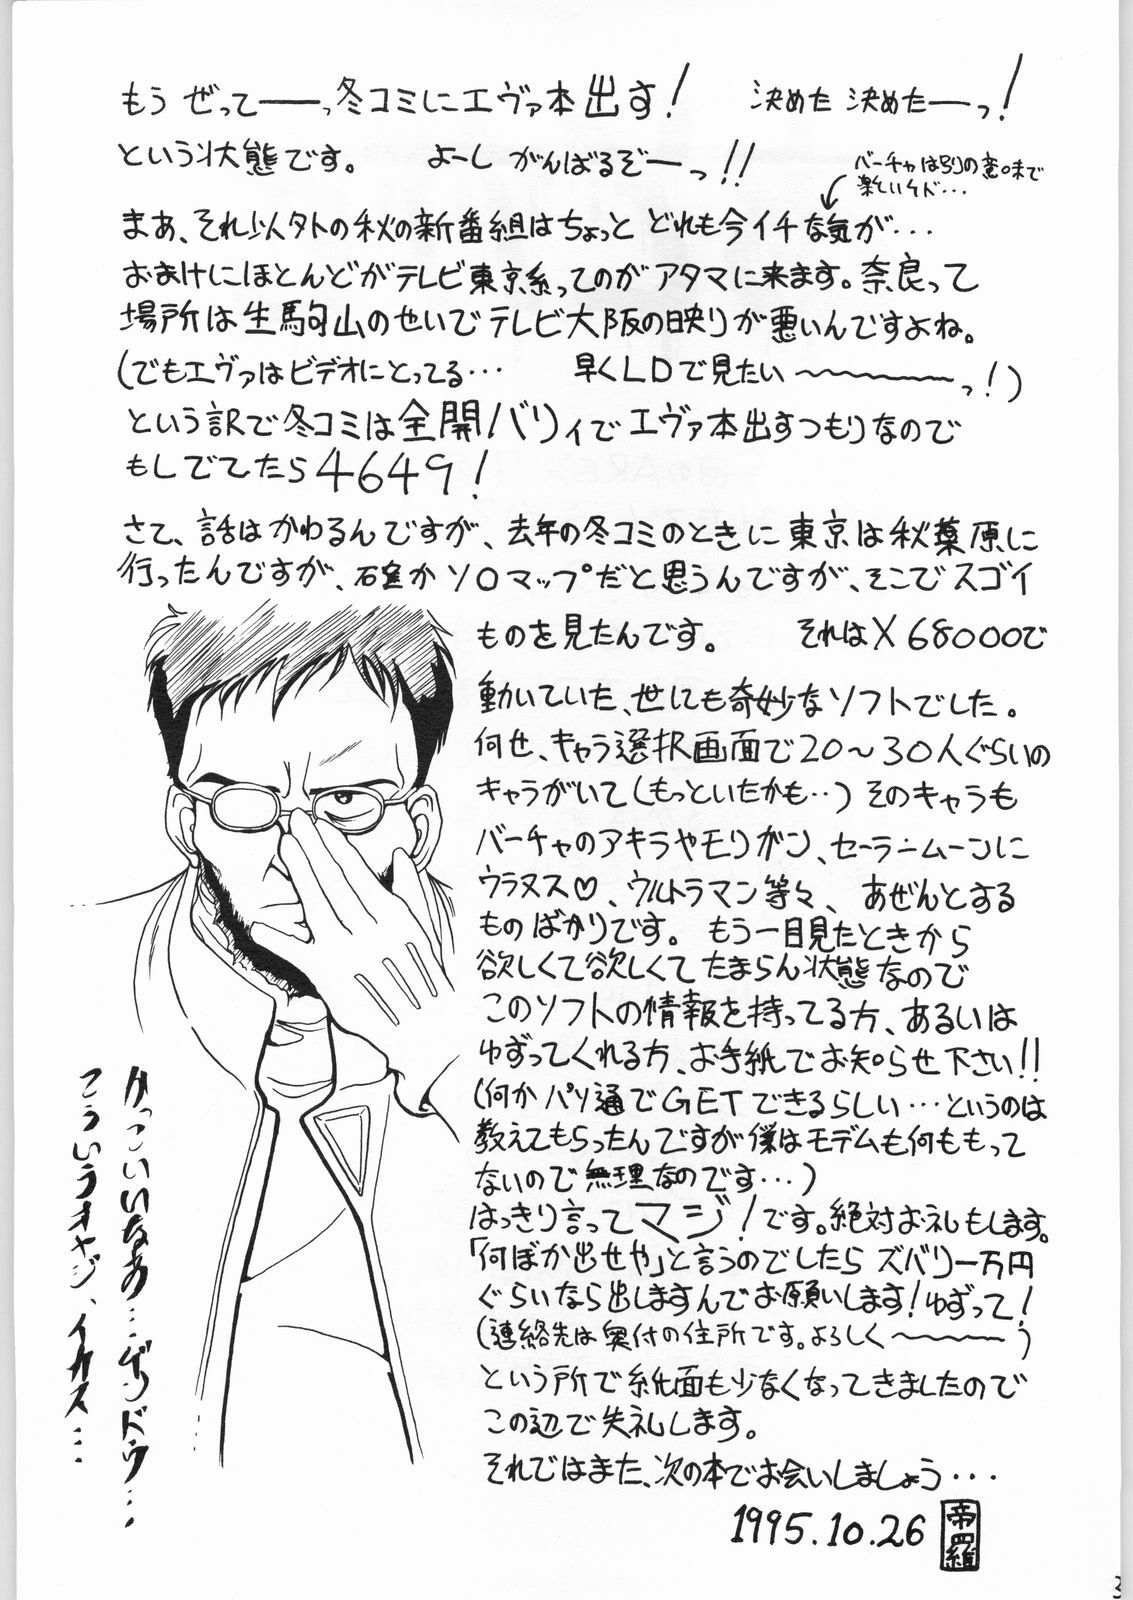 もう ぜって──っ冬コミにエヴァ本出す!　決めた 決めた──っ!
という状態です。　よーし がんばるぞーっ!!
バーチャは別の意味で
楽しいケド・・・
まあ、それ以外の秋の新番組はちょっと どれも今イチな気が・・・
おまけにほとんどがテレビ東京系ってのがアタマに来ます。奈良って
場所は生駒山のせいでテレビ大阪の映りが悪いんですよね。
(でもエヴァはビデオにとってる・・・　早くLDで見たい〜〜〜〜っ!)
という訳で冬コミは全開バリィでエヴァ本出すつもりなので
もしでてたら4649!
さて、話はかわるんですが、去年の冬コミのときに東京は秋葉原に
行ったんですが、確かソロマップだと思うんですが、そこでスゴイ
ものを見たんです。　それはX68000で
動いていた、世にも奇妙なソフトでした。
何せ、キャラ選択画面で20〜30人ぐらいの
キャラがいて(もっといたかも・・)そのキャラも
バーチャのアキラやモリガン、セーラームーンに
ウラヌス♡、ウルトラマン等々、あぜんとする
ものばかりです。もう一目見たときから
欲しくて欲しくてたまらん状態なので
このソフトの情報を持ってる方、あるいは
ゆずってくれる方、お手紙でお知らせ下さい!!
(何かパソ通でGETできるらしい・・・というのは
教えてもらったんですが僕はモデムも何ももって
ないので無理なのです・・・)
はっきり言ってマジ!です。絶対お礼もします。
「何ぼか出せや」と言うのでしたら ズバリ一万円
ぐらいなら出しますんでお願いします!ゆずって!
(連絡先は奥付の住所です。よろしく〜〜〜〜)
という所で紙面も少なくなってきましたので
この辺で失礼します。
それではまた、次の本でお会いしましょう・・・
1995.10.26
帝羅
かっこいいなあ・・・ゲンドウ・・・
こういうオヤジ、イカス・・・
3